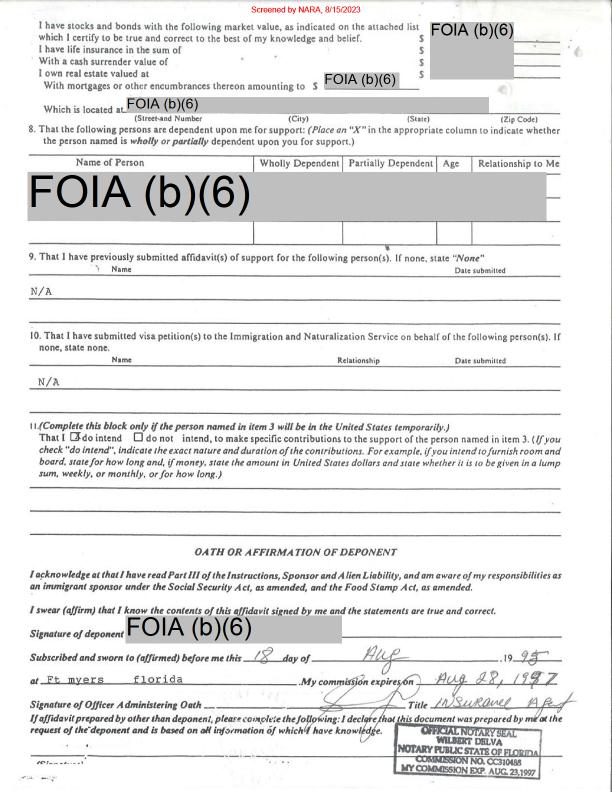 Screened by NARA, 8/15/2023
I have stocks and bonds with the following market value, as indicated on the attached list
which I certify to be true and correct to the best of my knowledge and belief. $ FOIA (b)(6)
I have life insurance in the sum of $
With a cash surrender value of $
I own real estate valued at $
With mortgages or other encumbrances thereon amounting to $ FOIA (b)(6)
Which is located at FOIA (b)(6)
(Street and Number (City) (State) (Zip Code)
8. That the following persons are dependent upon me for support: (Place an "X" in the appropriate column to indicate whether
the person named is wholly or partially dependent upon you for support.)
Name of Person Wholly Dependent Partially Dependent Age Relationship to Me
FOIA (b)(6)
9. That I have previously submitted affidavit(s) of support for the following person(s). If none, state "None"
Name Date submitted
N/A
10. That I have submitted visa petition(s) to the Immigration and Naturalization Service on behalf of the following person(s). If
none, state none.
Name Relationship Date submitted
N/A
11.(Complete this block only if the person named in item 3 will be in the United States temporarily.)
That I ☒ do intend ☐ do not intend, to make specific contributions to the support of the person named in item 3. (If you
check "do intend", indicate the exact nature and duration of the contributions. For example, if you intend to furnish room and
board, state for how long and, if money, state the amount in United States dollars and state whether it is to be given in a lump
sum, weekly, or monthly, or for how long.)
OATH OR AFFIRMATION OF DEPONENT
I acknowledge at that I have read Part III of the Instructions, Sponsor and Alien Liability, and am aware of my responsibilities as
an immigrant sponsor under the Social Security Act, as amended, and the Food Stamp Act, as amended.
I swear (affirm) that I know the contents of this affidavit signed by me and the statements are true and correct.
Signature of deponent FOIA (b)(6)
Subscribed and sworn to (affirmed) before me this 18 day of Aug ,19 95
at Ft myers florida .My commission expires on Aug 28, 1997
Signature of Officer Administering Oath Title Insurance Agent
If affidavit prepared by other than deponent, please complete the following: I declare that this document was prepared by me at the
request of the deponent and is based on all information of which I have knowledge.
OFFICIAL NOTARY SEAL
WILBERT DELVA
NOTARY PUBLIC STATE OF FLORIDA
COMMISSION NO. CC310488
MY COMMISSION EXP. AUG. 23,1997
(Signature)